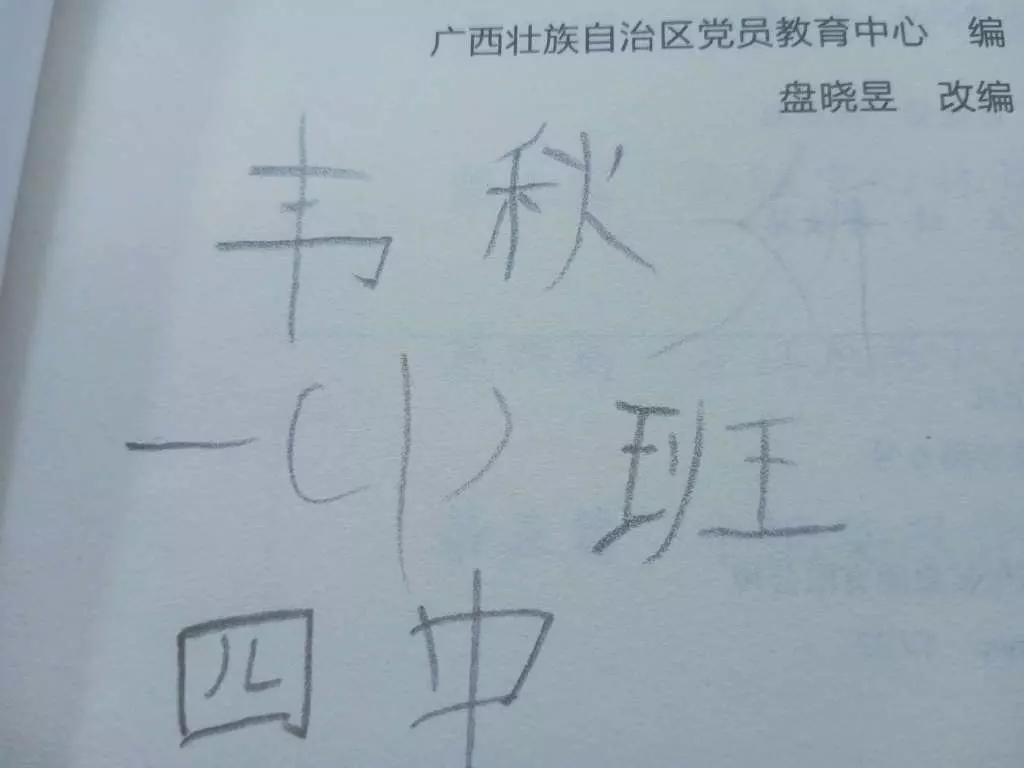 广西壮族自治区党员教育中心 编
盘晓昱 改编
韦秋
一(1)班
四中